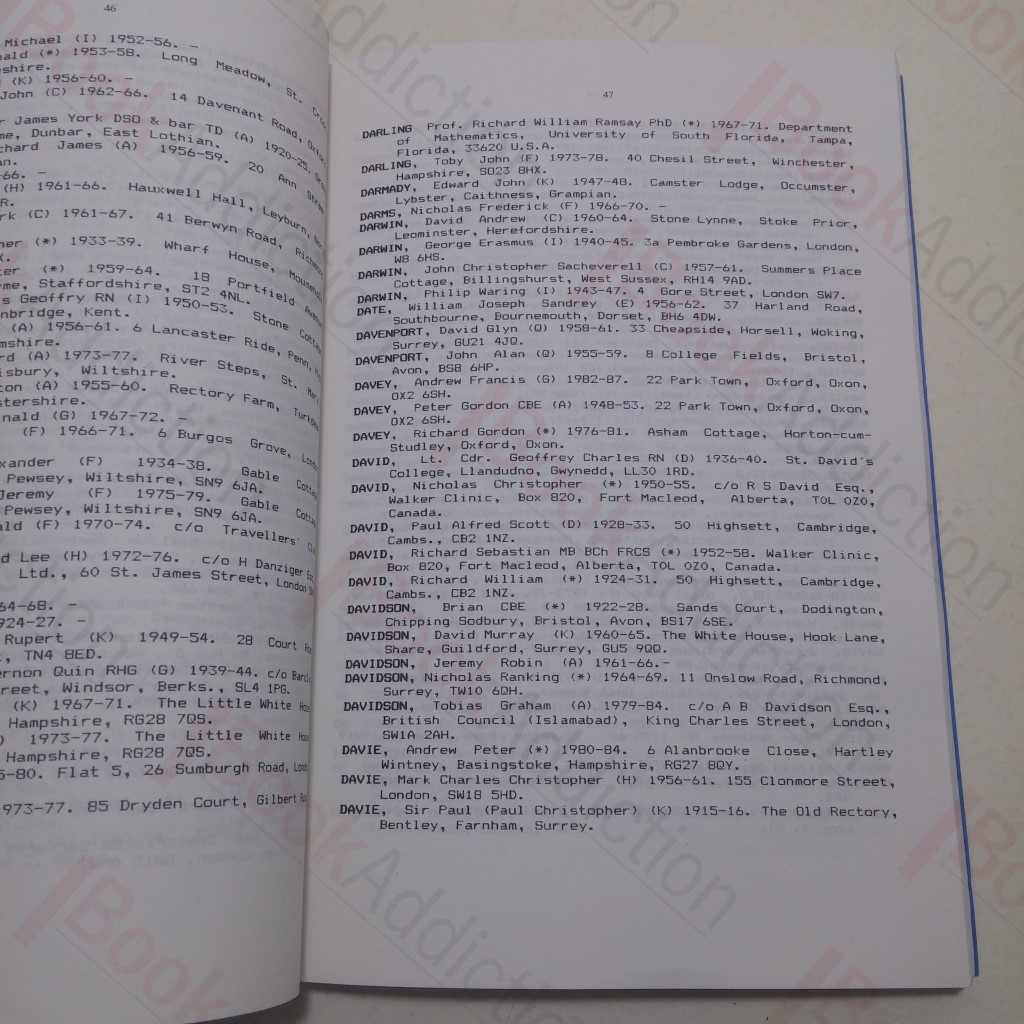 46
Michael (I) 1952-56. -
ald (*) 1953-58. Long Meadow, St. Cross
shire.
(K) 1956-60. -
John (C) 1962-66. 14 Davenant Road,
r James York DSO & bar TD (A) 1920-25.
me, Dunbar, East Lothian.
chard James (A) 1956-59. 20 Ann Street
an.
-66. -
(H) 1961-66. Hauxwell Hall, Leyburn,
R.
rk (C) 1961-67. 41 Berwyn Road, Richmond
her (*) 1933-39. Wharf House,
K.
ter (*) 1959-64. 18 Portfield Avenue
yme, Staffordshire, ST2 4NL.
s Geoffry RN (I) 1950-53. Stone Cottage
nbridge, Kent.
(A) 1956-61. 6 Lancaster Ride, Penn,
mshire.
rd (A) 1973-77. River Steps, St.
isbury, Wiltshire.
ton (A) 1955-60. Rectory Farm,
stershire.
nald (G) 1967-72. -
(F) 1966-71. 6 Burgos Grove,
xander (F) 1934-38. Gable
Pewsey, Wiltshire, SN9 6JA.
Jeremy (F) 1975-79. Gable
Pewsey, Wiltshire, SN9 6JA.
ald (F) 1970-74. c/o Travellers'
d Lee (H) 1972-76. c/o H Danziger Esq
Ltd., 60 St. James Street, London
64-68. -
924-27. -
Rupert (K) 1949-54. 28 Court
, TN4 8ED.
ernon Quin RHG (G) 1939-44. c/o
reet, Windsor, Berks., SL4 1PG.
(K) 1967-71. The Little White
Hampshire, RG28 7QS.
) 1973-77. The Little White
Hampshire, RG28 7QS.
5-80. Flat 5, 26 Sumburgh Road,
973-77. 85 Dryden Court, Gilbert
47
DARLING Prof. Richard William Ramsay PhD (*) 1967-71. Department
of Mathematics, University of South Florida, Tampa,
Florida, 33620 U.S.A.
DARLING, Toby John (F) 1973-78. 40 Chesil Street, Winchester,
Hampshire, SO23 8HX.
DARMADY, Edward John (K) 1947-48. Camster Lodge, Occumster,
Lybster, Caithness, Grampian.
DARMS, Nicholas Frederick (F) 1966-70. -
DARWIN, David Andrew (C) 1960-64. Stone Lynne, Stoke Prior,
Leominster, Herefordshire.
DARWIN, George Erasmus (I) 1940-45. 3a Pembroke Gardens, London,
W8 6HS.
DARWIN, John Christopher Sacheverell (C) 1957-61. Summers Place
Cottage, Billingshurst, West Sussex, RH14 9AD.
DARWIN, Philip Waring (I) 1943-47. 4 Gore Street, London SW7.
DATE, William Joseph Sandrey (E) 1956-62. 37 Harland Road,
Southbourne, Bournemouth, Dorset, BH6 4DW.
DAVENPORT, David Glyn (Q) 1958-61. 33 Cheapside, Horsell, Woking,
Surrey, GU21 4JQ.
DAVENPORT, John Alan (Q) 1955-59. 8 College Fields, Bristol,
Avon, BS8 6HP.
DAVEY, Andrew Francis (G) 1982-87. 22 Park Town, Oxford, Oxon,
OX2 6SH.
DAVEY, Peter Gordon CBE (A) 1948-53. 22 Park Town, Oxford, Oxon,
OX2 6SH.
DAVEY, Richard Gordon (*) 1976-81. Asham Cottage, Horton-cum-
Studley, Oxford, Oxon.
DAVID, Lt. Cdr. Geoffrey Charles RN (D) 1936-40. St. David's
College, Llandudno, Gwynedd, LL30 1RD.
DAVID, Nicholas Christopher (*) 1950-55. c/o R S David Esq.,
Walker Clinic, Box 820, Fort Macleod, Alberta, TOL OZO,
Canada.
DAVID, Paul Alfred Scott (D) 1928-33. 50 Highsett, Cambridge,
Cambs., CB2 1NZ.
DAVID, Richard Sebastian MB BCh FRCS (*) 1952-58. Walker Clinic,
Box 820, Fort Macleod, Alberta, TOL OZO, Canada.
DAVID, Richard William (*) 1924-31. 50 Highsett, Cambridge,
Cambs., CB2 1NZ.
DAVIDSON, Brian CBE (*) 1922-28. Sands Court, Dodington,
Chipping Sodbury, Bristol, Avon, BS17 6SE.
DAVIDSON, David Murray (K) 1960-65. The White House, Hook Lane,
Share, Guildford, Surrey, GU5 9QQ.
DAVIDSON, Jeremy Robin (A) 1961-66.-
DAVIDSON, Nicholas Ranking (*) 1964-69. 11 Onslow Road, Richmond,
Surrey, TW10 6QH.
DAVIDSON, Tobias Graham (A) 1979-84. c/o A B Davidson Esq.,
British Council (Islamabad), King Charles Street, London,
SW1A 2AH.
DAVIE, Andrew Peter (*) 1980-84. 6 Alanbrooke Close, Hartley
Wintney, Basingstoke, Hampshire, RG27 8QY.
DAVIE, Mark Charles Christopher (H) 1956-61. 155 Clonmore Street,
London, SW18 5HD.
DAVIE, Sir Paul (Paul Christopher) (K) 1915-16. The Old Rectory,
Bentley, Farnham, Surrey.